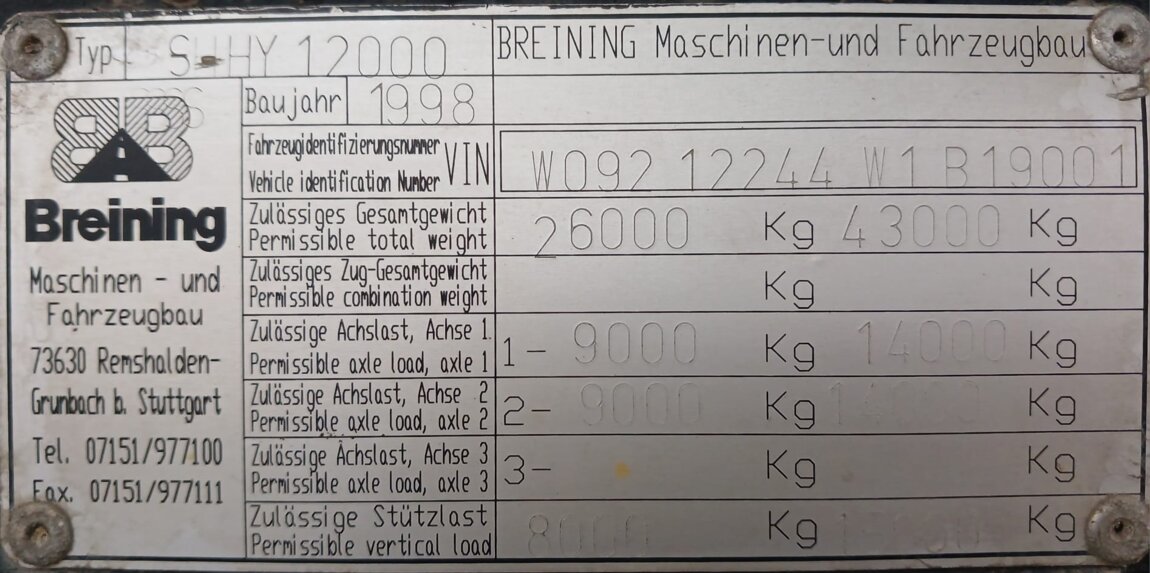 Typ SHHY 12000
BREINING Maschinen-und Fahrzeugbau
Baujahr 1998
Breining
Maschinen - und
Fahrzeugbau
73630 Remshalden-
Grunbach b. Stuttgart
Tel. 07151/977100
Fax. 07151/977111
Fahrzeugidentifizierungsnummer
Vehicle identification Number VIN W092 12244 W1 B19001
Zulässiges Gesamtgewicht
Permissible total weight 26000 Kg 43000 Kg
Zulässiges Zug-Gesamtgewicht
Permissible combination weight Kg Kg
Zulässige Achslast, Achse 1.
Permissible axle load, axle 1 1- 9000 Kg 14000 Kg
Zulässige Achslast, Achse 2
Permissible axle load, axle 2 2- 9000 Kg Kg
Zulässige Achslast, Achse 3
Permissible axle load, axle 3 3- Kg Kg
Zulässige Stützlast
Permissible vertical load 8000 Kg Kg